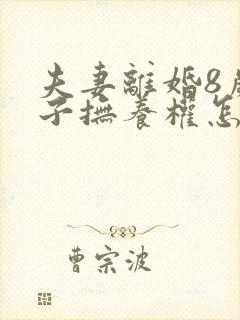 夫妻離婚8歲
子撫養權怎
曹宗波